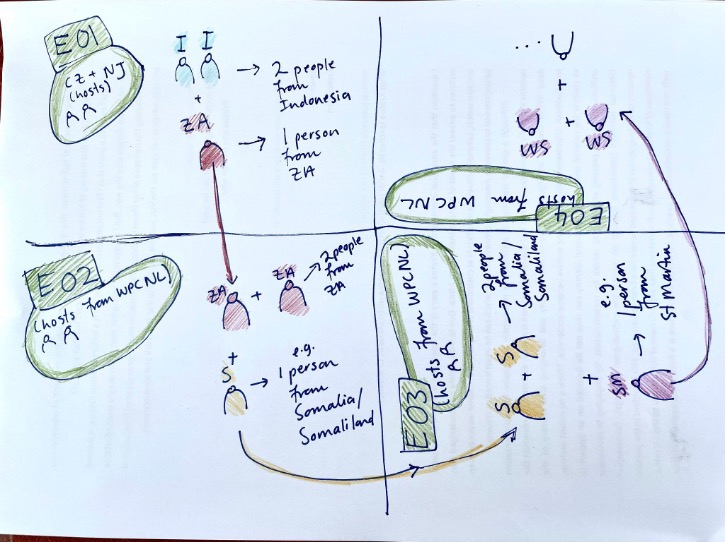 E01
CZ + NJ
(hosts)
I I
→ 2 people
from
Indonesia
+
ZA
→ 1 person
from
ZA
E02
(hosts from WPCNL)
ZA + ZA
→ 2 people
from
ZA
+
S → e.g.
1 person
from
Somalia/
Somaliland
E03
(hosts from WPCNL)
S + S
→ 2 people
from
Somalia/
Somaliland
+
SM → e.g.
1 person
from
St Martin
E04
hosts from WPCNL
SM + SM
+
U ...